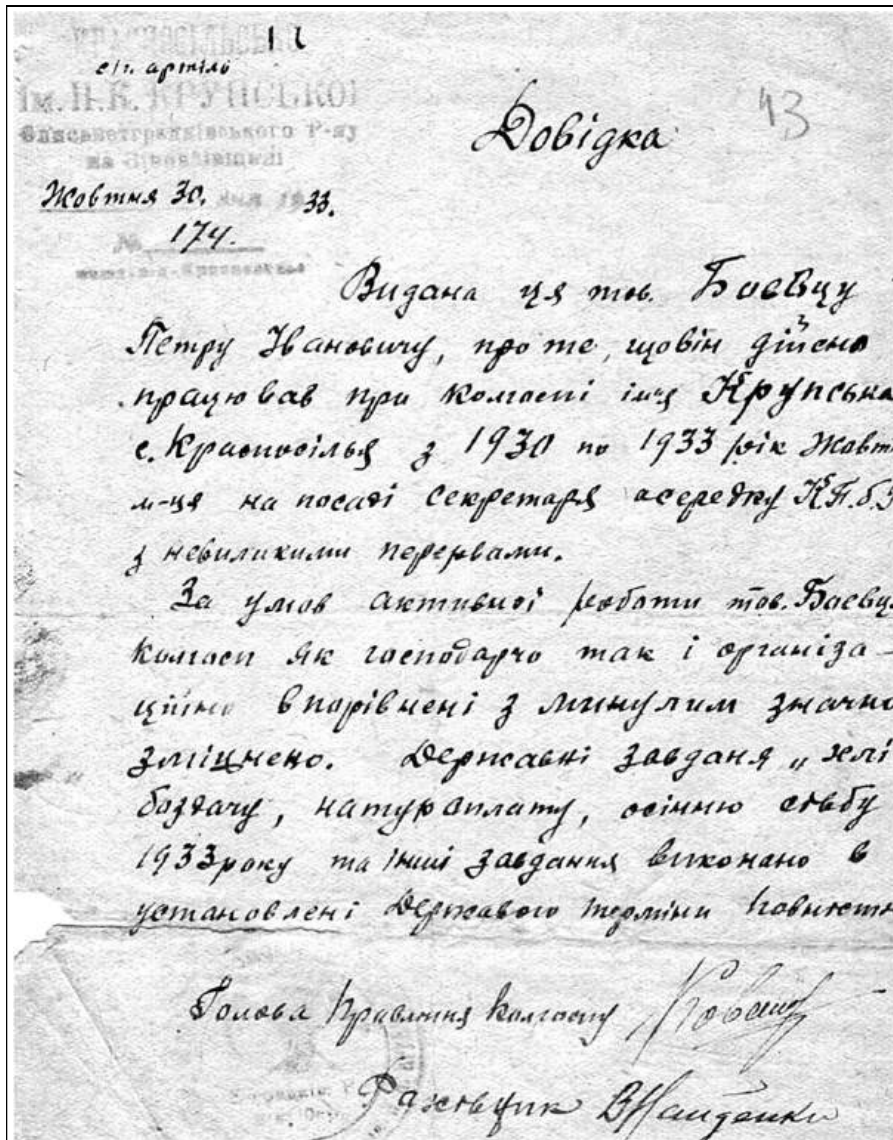 КРАСНОСІЛЬСЬКО
с/г. артіль
ім. Н.К. КРУПСЬКОЇ
Єлисаветградківського Р-ну
на
Довідка
43
Жовтня 30. дня 1933.
№ 174.
Видана ця тов. Боєвцу
Петру Івановичу, про те, що він дійсно
працював при колгоспі ім'я Крупська
с. Красносілья з 1930 по 1933 рік Жовт
м-ця на посаді секретаря осередку К.П.б.У
з невиликими перервами.
За умов активної роботи тов. Боєвц
колгосп як господарчо так і організа-
ційно впорівнені з минулим значно
зміцнено. Державні завданя „хлі
боздачу, натуроплату, осінню сівбу
1933 року та інші завдання виконано в
установлені Державою терміни повністю
Голова Правління колгоспу
Рахівник В Найденко